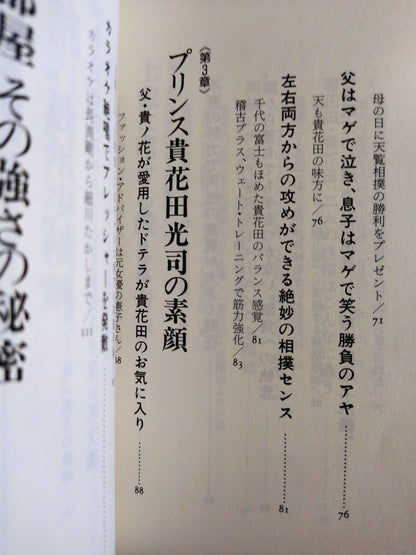 母の日に天覧相撲の勝利をプレゼント/71
父はマゲで泣き、息子はマゲで笑う勝負のアヤ………76
天も貴花田の味方に/76
左右両方からの攻めができる絶妙の相撲センス………81
千代の富士もほめた貴花田のバランス感覚/81
稽古プラス、ウェート・トレーニングで筋力強化/83
〈第3章〉
プリンス貴花田光司の素顔
父・貴ノ花が愛用したドテラが貴花田のお気に入り………88
ファッション・アドバイザーは元女優の憲子さん/88
カラオケ絶唱でプレッシャーを発散
カラオケは長渕剛から細川たかしまで
部屋 その強さの秘密